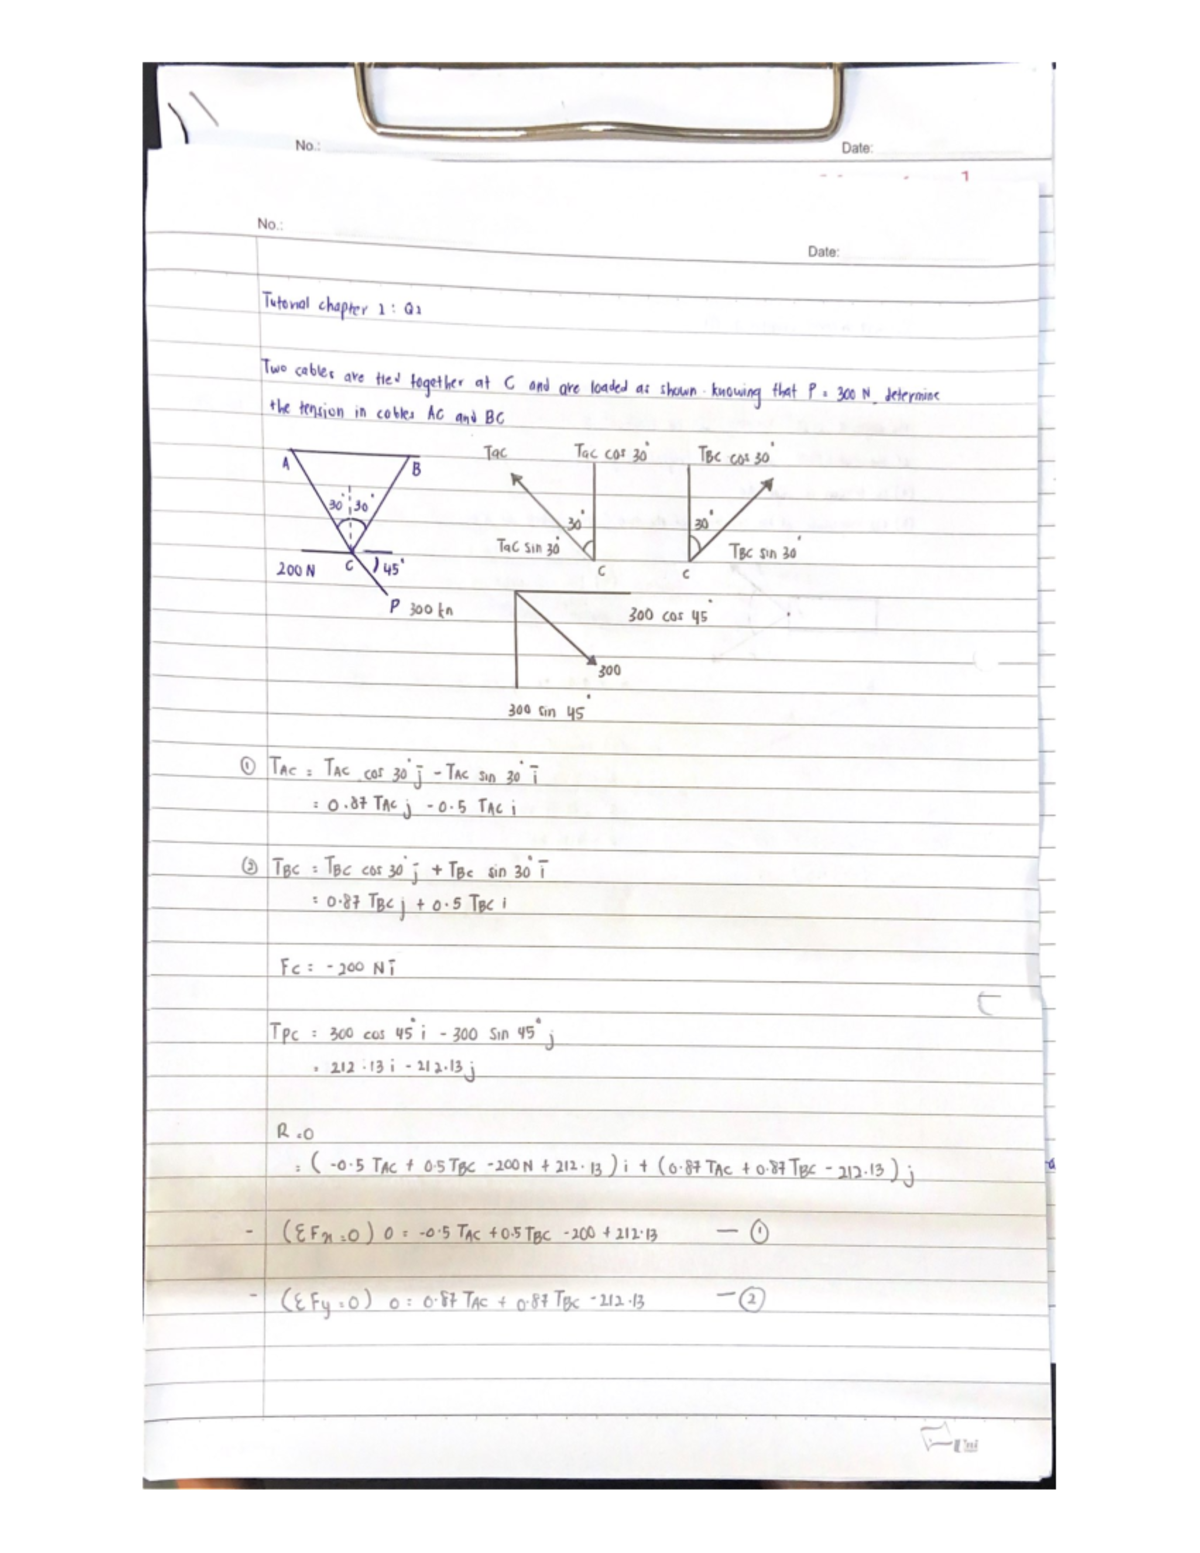 No.:
Date:
1
No.:
Date:
Tutorial chapter 2 : Q2
Two cables are tied together at C and are loaded as shown. knowing that P = 300 N, determine
the tension in cables AC and BC
A
B
30° 30°
200 N
C
45°
P 300 kn
Tac
Tac cos 30°
TBC cos 30°
30°
30°
Tac sin 30°
TBC sin 30°
C
C
300 cos 45°
300
300 sin 45°
① TAC = TAC cos 30° j - TAC sin 30° i
= 0.87 TAC j - 0.5 TAC i
② TBC = TBC cos 30° j + TBC sin 30° i
= 0.87 TBC j + 0.5 TBC i
Fc = -200 N i
TPC = 300 cos 45° i - 300 sin 45° j
= 212.13 i - 212.13 j
R = 0
= ( -0.5 TAC + 0.5 TBC - 200N + 212.13 ) i + ( 0.87 TAC + 0.87 TBC - 212.13 ) j
- (ΣFx = 0) 0 = -0.5 TAC + 0.5 TBC - 200 + 212.13 — ①
- (ΣFy = 0) 0 = 0.87 TAC + 0.87 TBC - 212.13 — ②
Uni